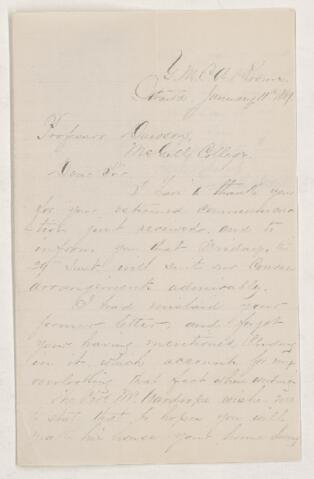 Y.M.C.A. Rooms
January 11th 1869.
Professor Dawson,
McGill College.
Dear Sir
I have to thank you
for your esteemed communica
tion just received, and to
inform you that Friday, the
29 Inst. will suit our Course
arrangements admirably.
I had mislaid your
former letter, and forgot
your having mentioned
in it, which accounts for my
overlooking that fact when writing
The Rev Mr. Wardrope wishes me
to state that he hopes you will
make his house your home during